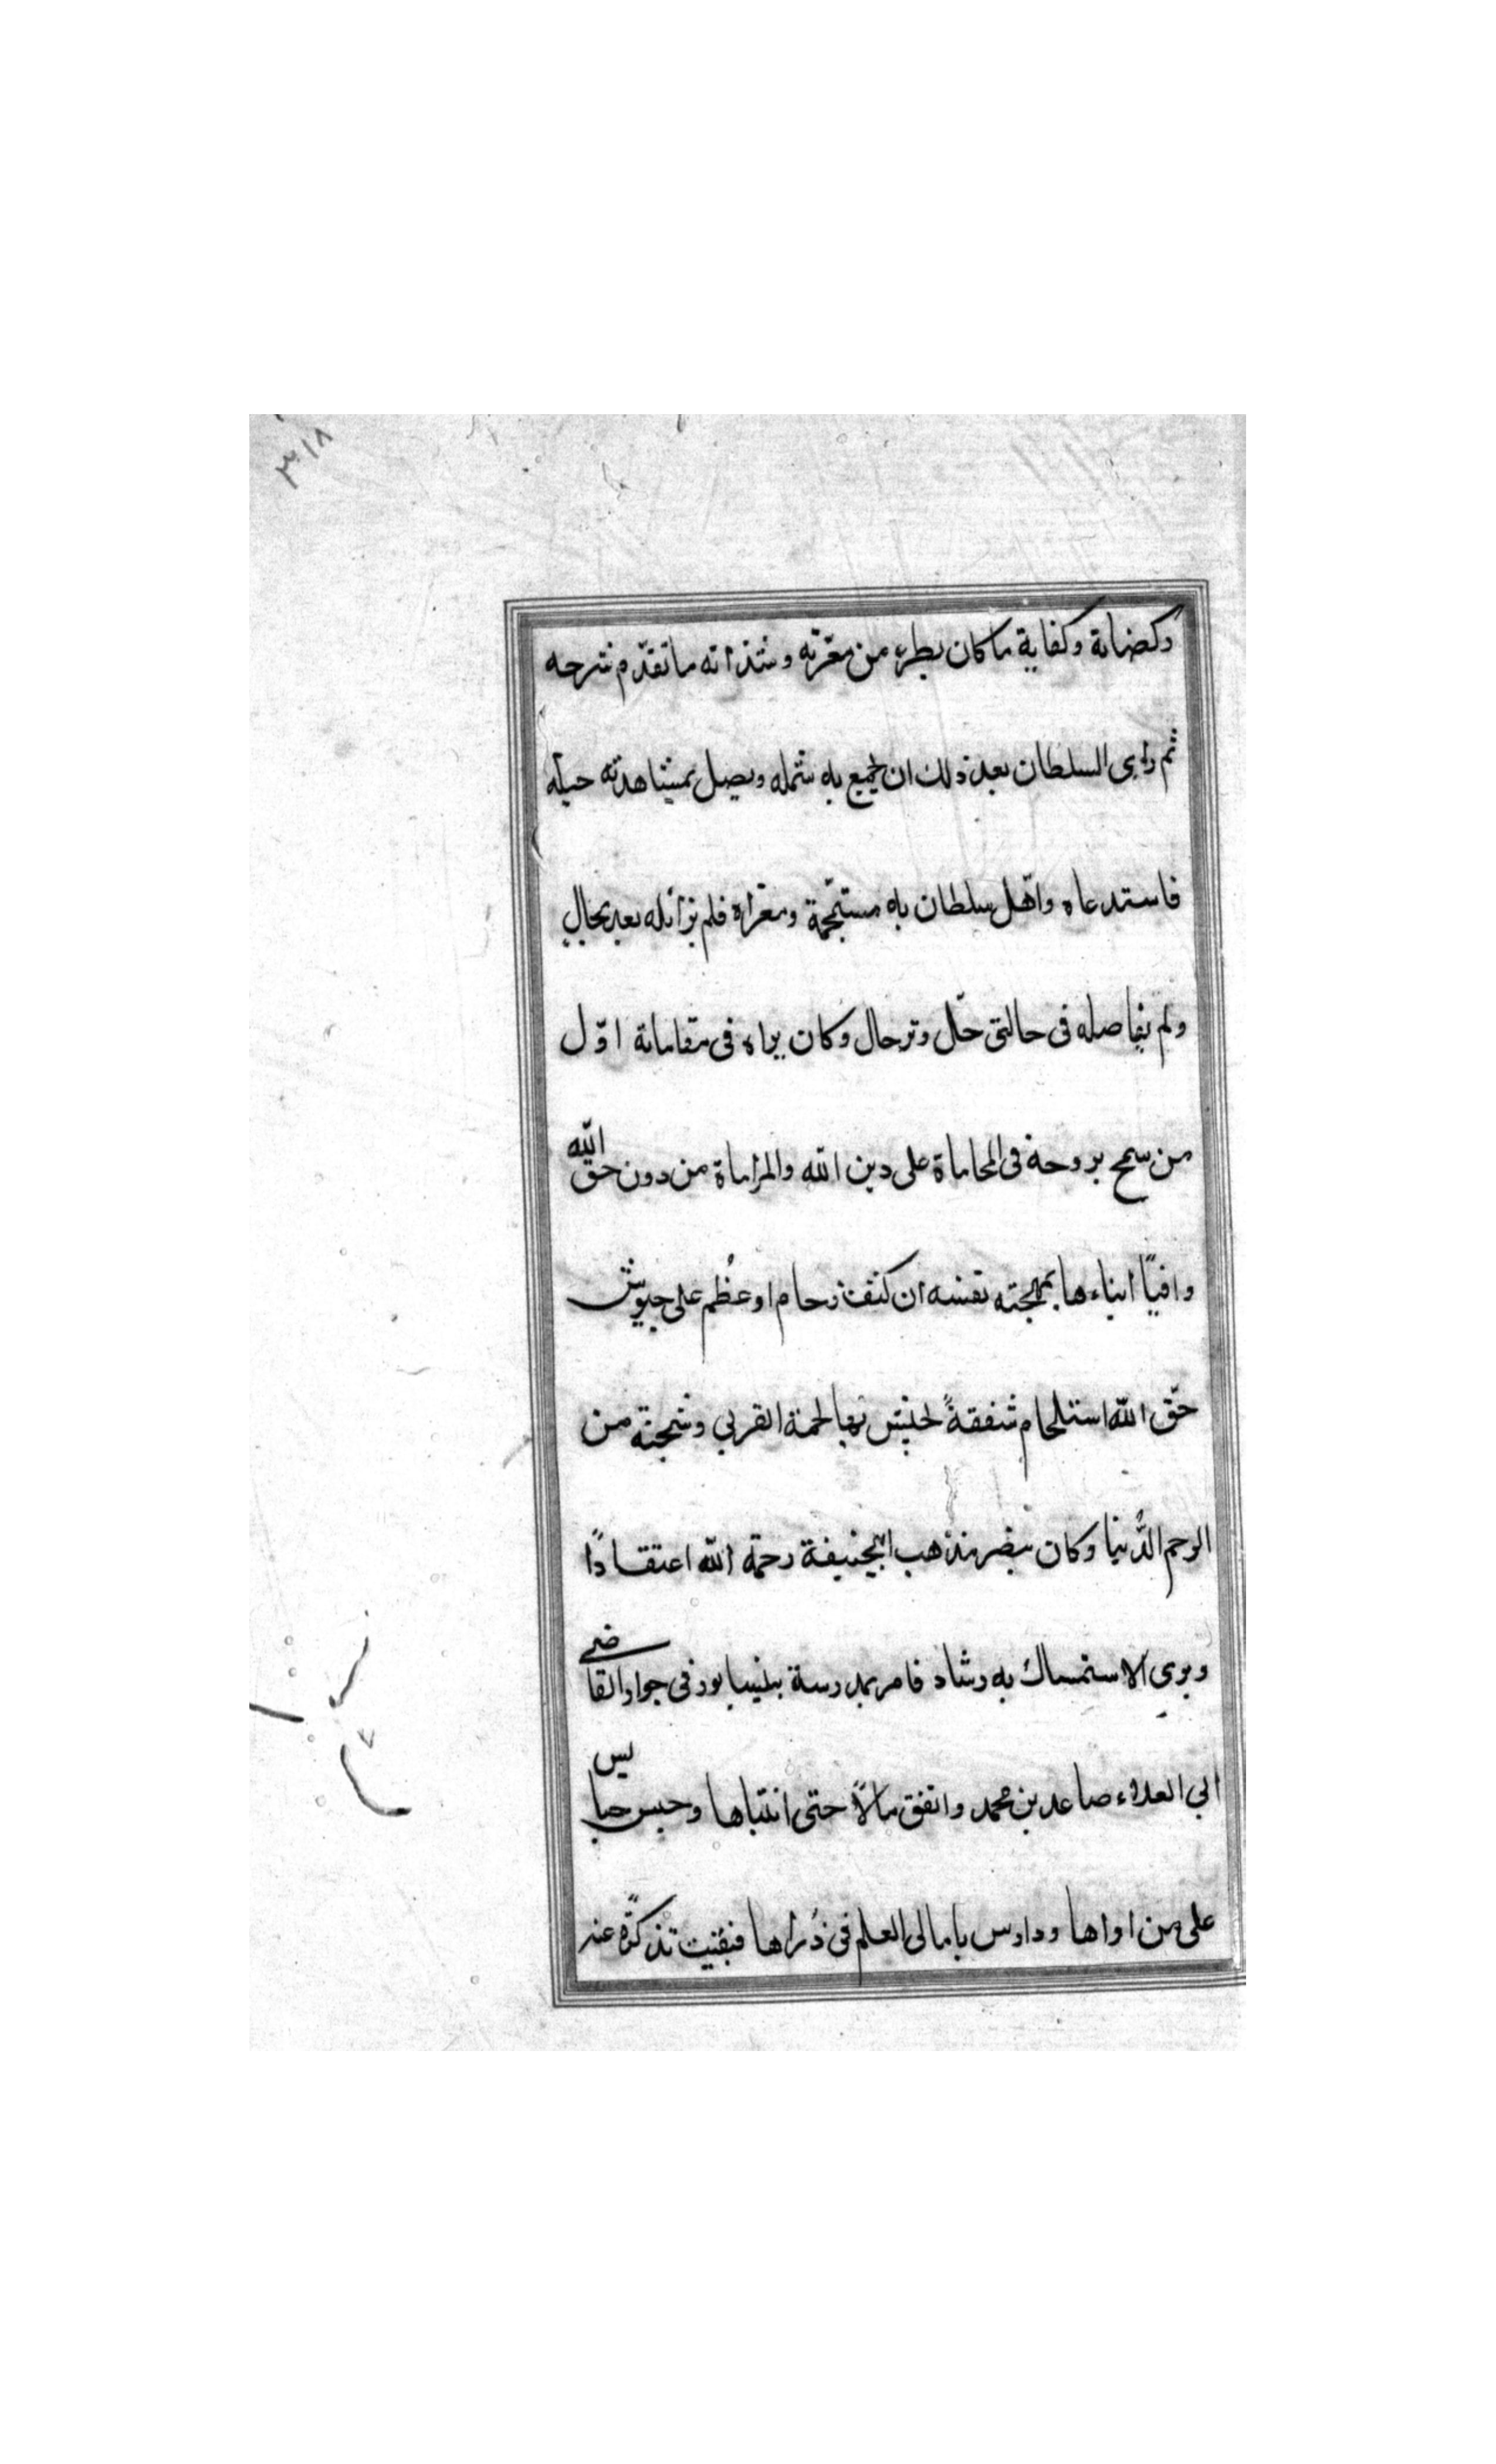 ٣١٨
وكضانة وكفاية ما كان يطرء من معّرته وشذاته ما تقدّم شرحه
ثم راى السلطان بعد ذلك ان يجمع به شمله ويصل بمشاهدته حبله
فاستدعاه واهل سلطان به مستجّمة ومغزاه فلم يزائله بعد بحال
ولم يفاصله فى حالتى حلّ وترحال وكان يراه فى مقاماتة اوّل
من سمح بروحة فى المحاماة على دين الله والمراماة من دون حق الله
وافيًا ابناءها بمهجته نفسه ان كثف زحام او عُظم على جيوش
حّق الله استلحام شفقةً لحنش بها لحمة القربي وشجنة من
الرحم الدُنيا وكان ينصر مذهب ابيحنيفة رحمة الله اعتقادًا
ويرى الاستمساك به رشاد فامر بمدرسة بنيسابور فى جوار القاضى
ابي العلاء صاعد بن محمد وانفق مالًا حتى ابتناها وحبس حبايس
على من اواها ودارس بامالى العلم فى ذُراها فبقيت تذكرّةً عند